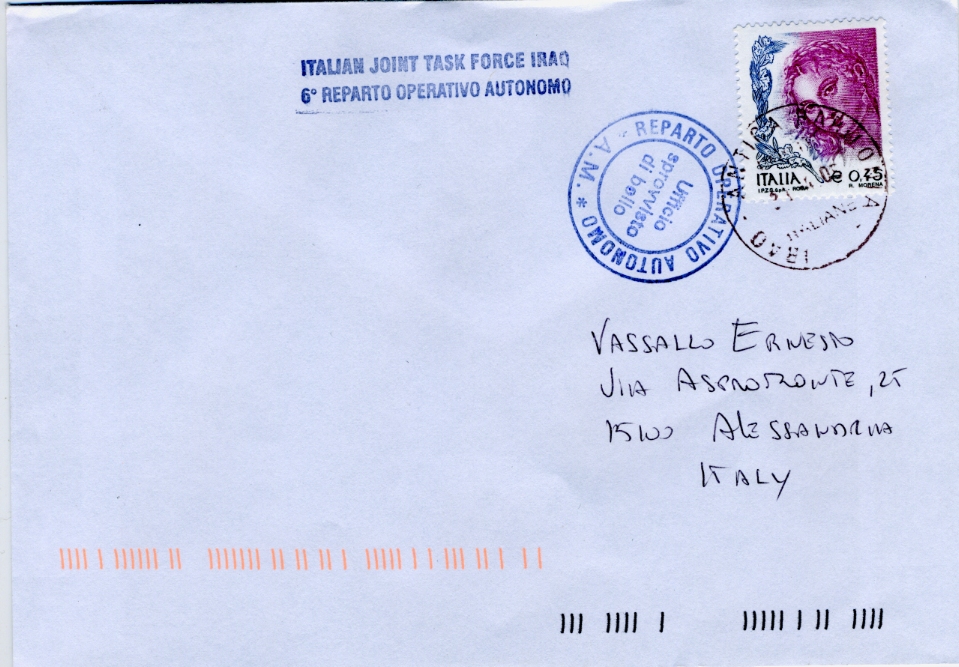 ITALIAN JOINT TASK FORCE IRAQ
6° REPARTO OPERATIVO AUTONOMO
A.M. - REPARTO OPERATIVO AUTONOMO *
Ufficio
sprovvisto
di bollo
ITALIA € 0,45
I.P.Z.S. S.p.A. - ROMA R. MORENA
ANTICA BABILONIA - IRAQ -
ITALIANE
VASSALLO ERNESTO
VIA ASPROMONTE, 25
15100 ALESSANDRIA
ITALY